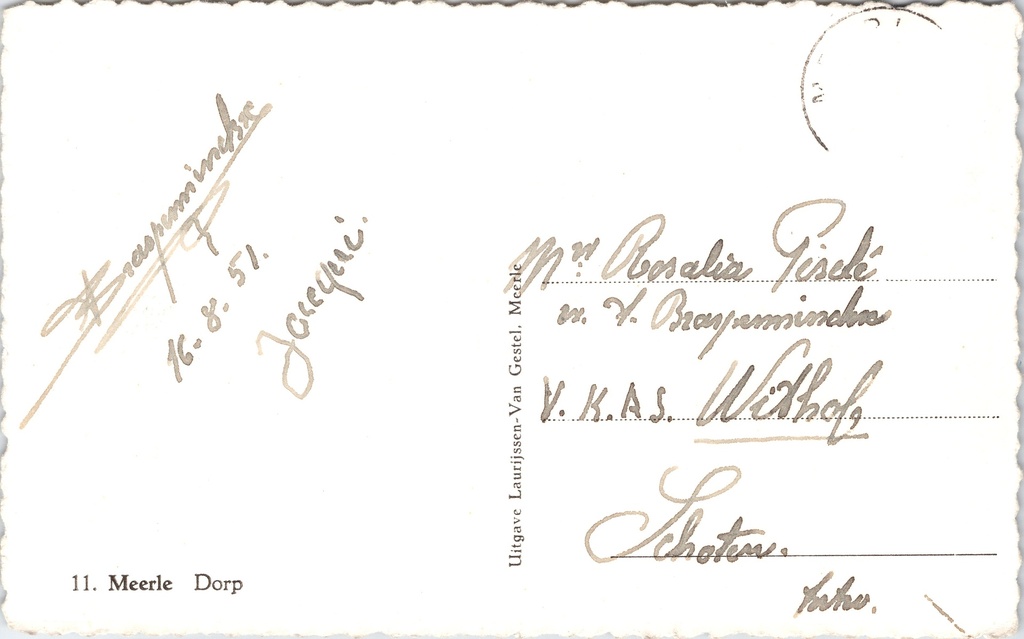 Braspenninckx
16.8.51.
Mej Rosalia
V. Braspenninckx
V.K.A.S. Withof,
Schoten.
Uitgave Laurijssen-Van Gestel, Meerle
11. Meerle Dorp